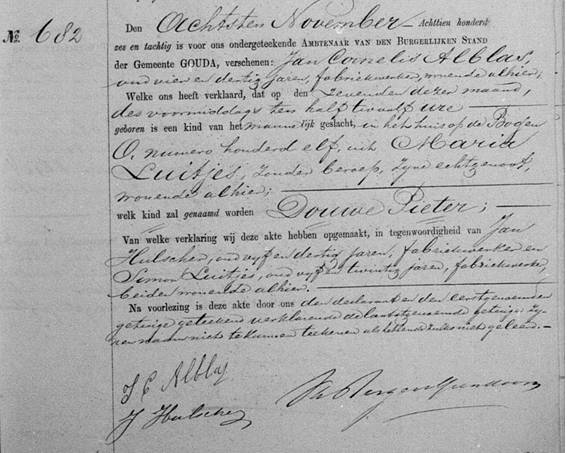 № 682
Den Achtsten November Achttien honderd
zes en tachtig is voor ons ondergeteekende AMBTENAAR VAN DEN BURGERLIJKEN STAND
der Gemeente GOUDA, verschenen: Jan Cornelis Alblas,
oud vier en dertig jaren, fabriekwerker, wonende alhier;
Welke ons heeft verklaard, dat op den zevenden dezer maand,
des voormiddags ten half twaalf ure
geboren is een kind van het mannelijk geslacht, in het huis op de Bogen
O, numero honderd elf, uit Maria
Luitjes, zonder beroep, zijne echtgenoot,
wonende alhier;
welk kind zal genaamd worden Douwe Pieter;
Van welke verklaring wij deze akte hebben opgemaakt, in tegenwoordigheid van Jan
Hulscher, oud vijf en dertig jaren, fabriekwerker en
Simon Luitjes, oud vijf en twintig jaren, fabriekwerker,
beiden wonende alhier.
Na voorlezing is deze akte door ons den declarant en den eerstgenoemden
getuige geteekend verklarende de laatstgenoemde getuige zijnen
naam niet te kunnen teekenen als hebbende zulks niet geleerd.
J C Alblas
J Hulscher